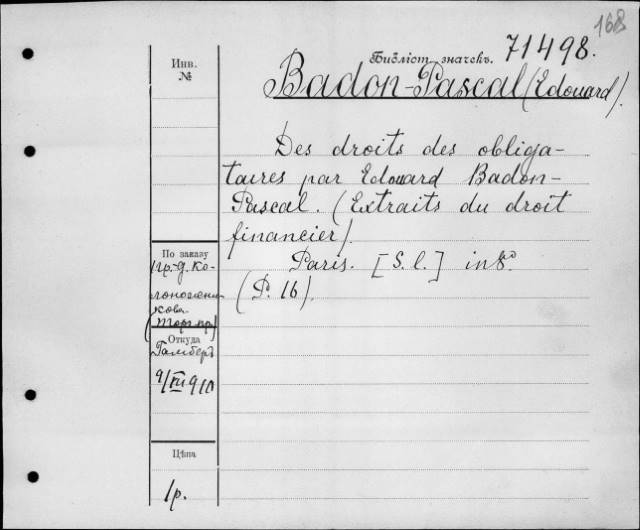 168
Библіот. значекъ. 71498.
Badon-Pascal (Edouard).
Инв.
№
Des droits des obliga-
taires par Edouard Badon-
Pascal. (Extraits du droit
financier).
Paris. [S. l.] in 8°.
(P. 16).
По заказу
пр.-д. Ко-
(Торг. пр)
Откуда
9/VII 910
Цѣна
1 р.